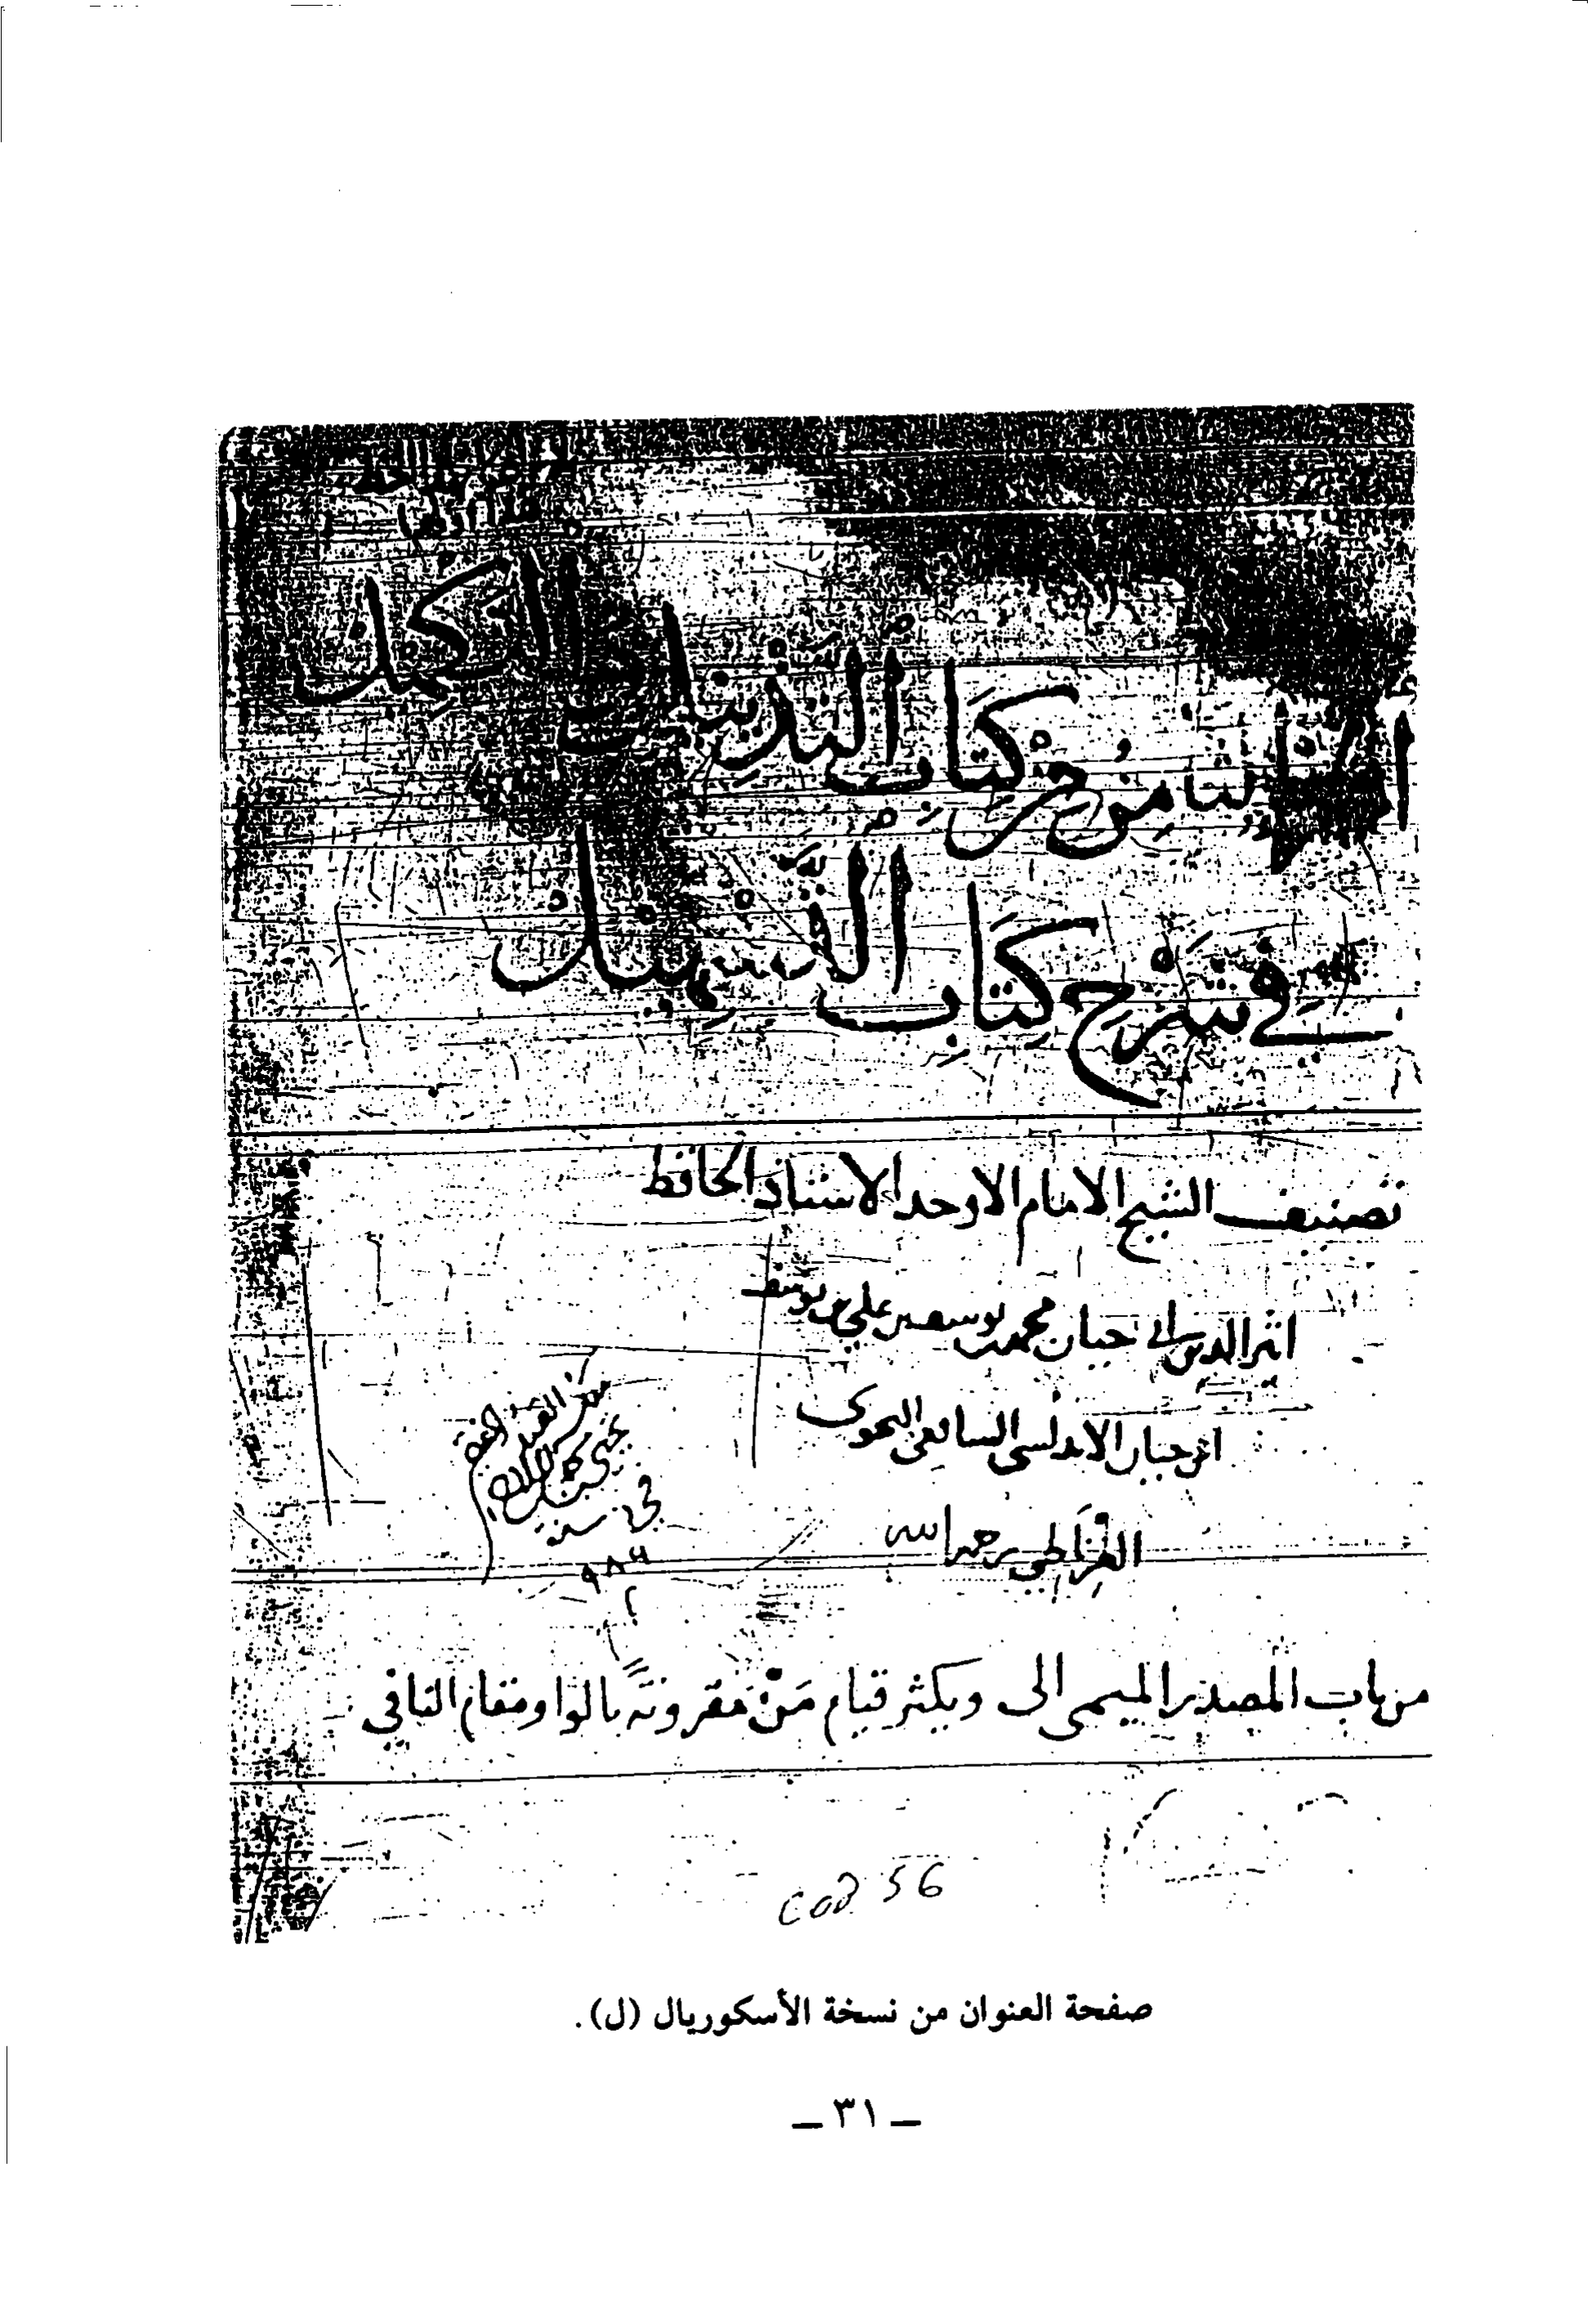 الثامن من كتاب التَّذْيِيل والتكميل
في شَرْح كِتَاب التَّسْهِيل
تصنيف الشيخ الامام الاوحد الاستاذ الحافظ
اثير الدين ابي حيان محمد بن يوسف بن علي بن يوسف
ابن حيان الاندلسي النحوى
الغرناطي رحمه الله
في سنة
٩٨٦
من باب المصدر الميمي الى ويكثر قيام مَنْ مقرونةً بالواو مقام النافي
cod 56
صفحة العنوان من نسخة الأسكوريال (ل).
— ٣١ —